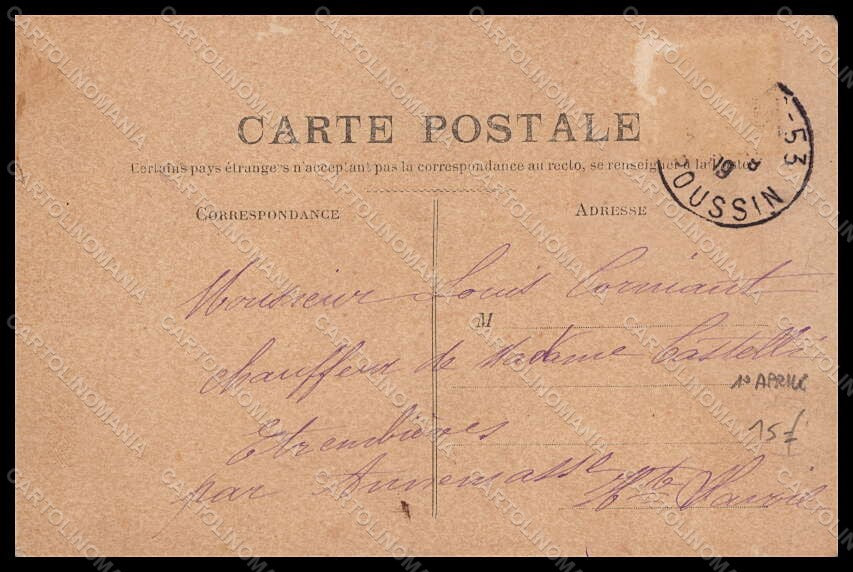 CARTE POSTALE
Certains pays étrangers n'acceptant pas la correspondance au recto, se renseigner à la Poste
CORRESPONDANCE
ADRESSE
-53
19
OUSSIN
Monsieur Louis Corniant
M
chauffeur de Madame Castelli
1° APRILE
Etrembières
15
par Annemasse
Hte Savoie
CARTOLINOMANIA